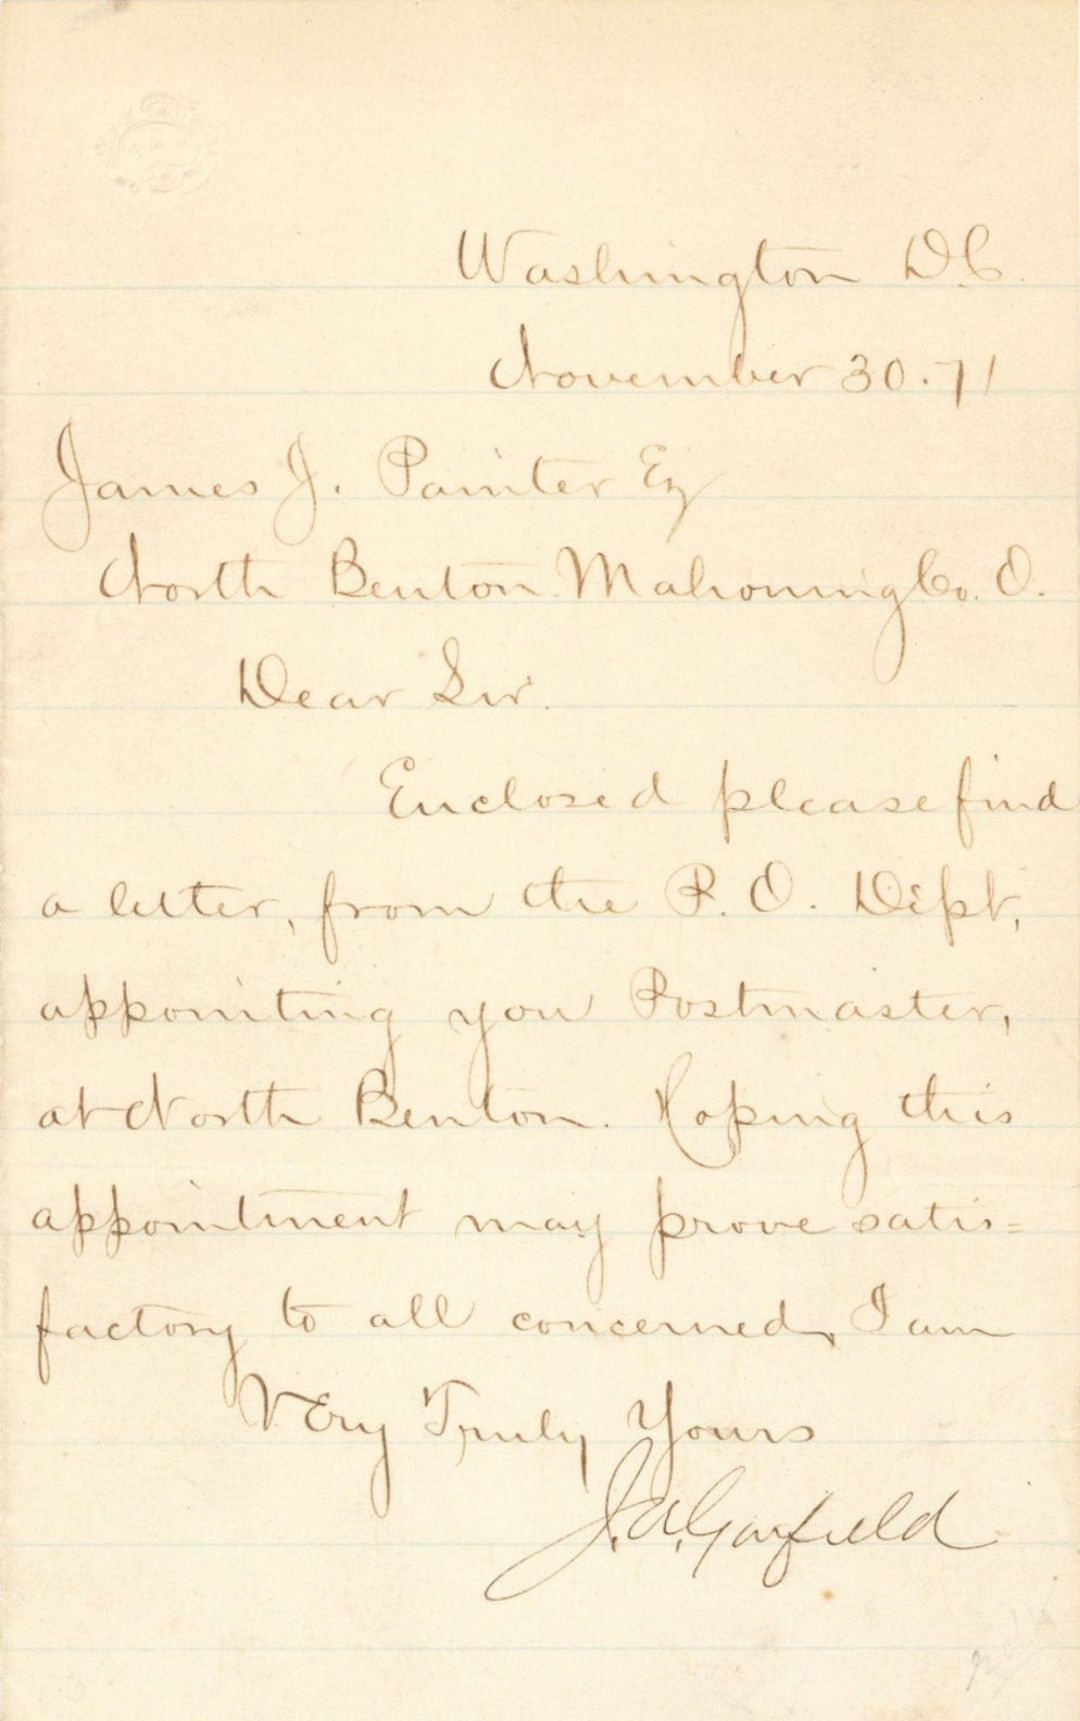 Washington D.C.
November 30. 71
James J. Painter Esq
North Benton Mahoning Co. O.
Dear Sir.
Enclosed please find
a letter, from the P. O. Dept,
appointing you Postmaster,
at North Benton. Hoping this
appointment may prove satis=
factory to all concerned, I am
Very Truly Yours
J. A. Garfield